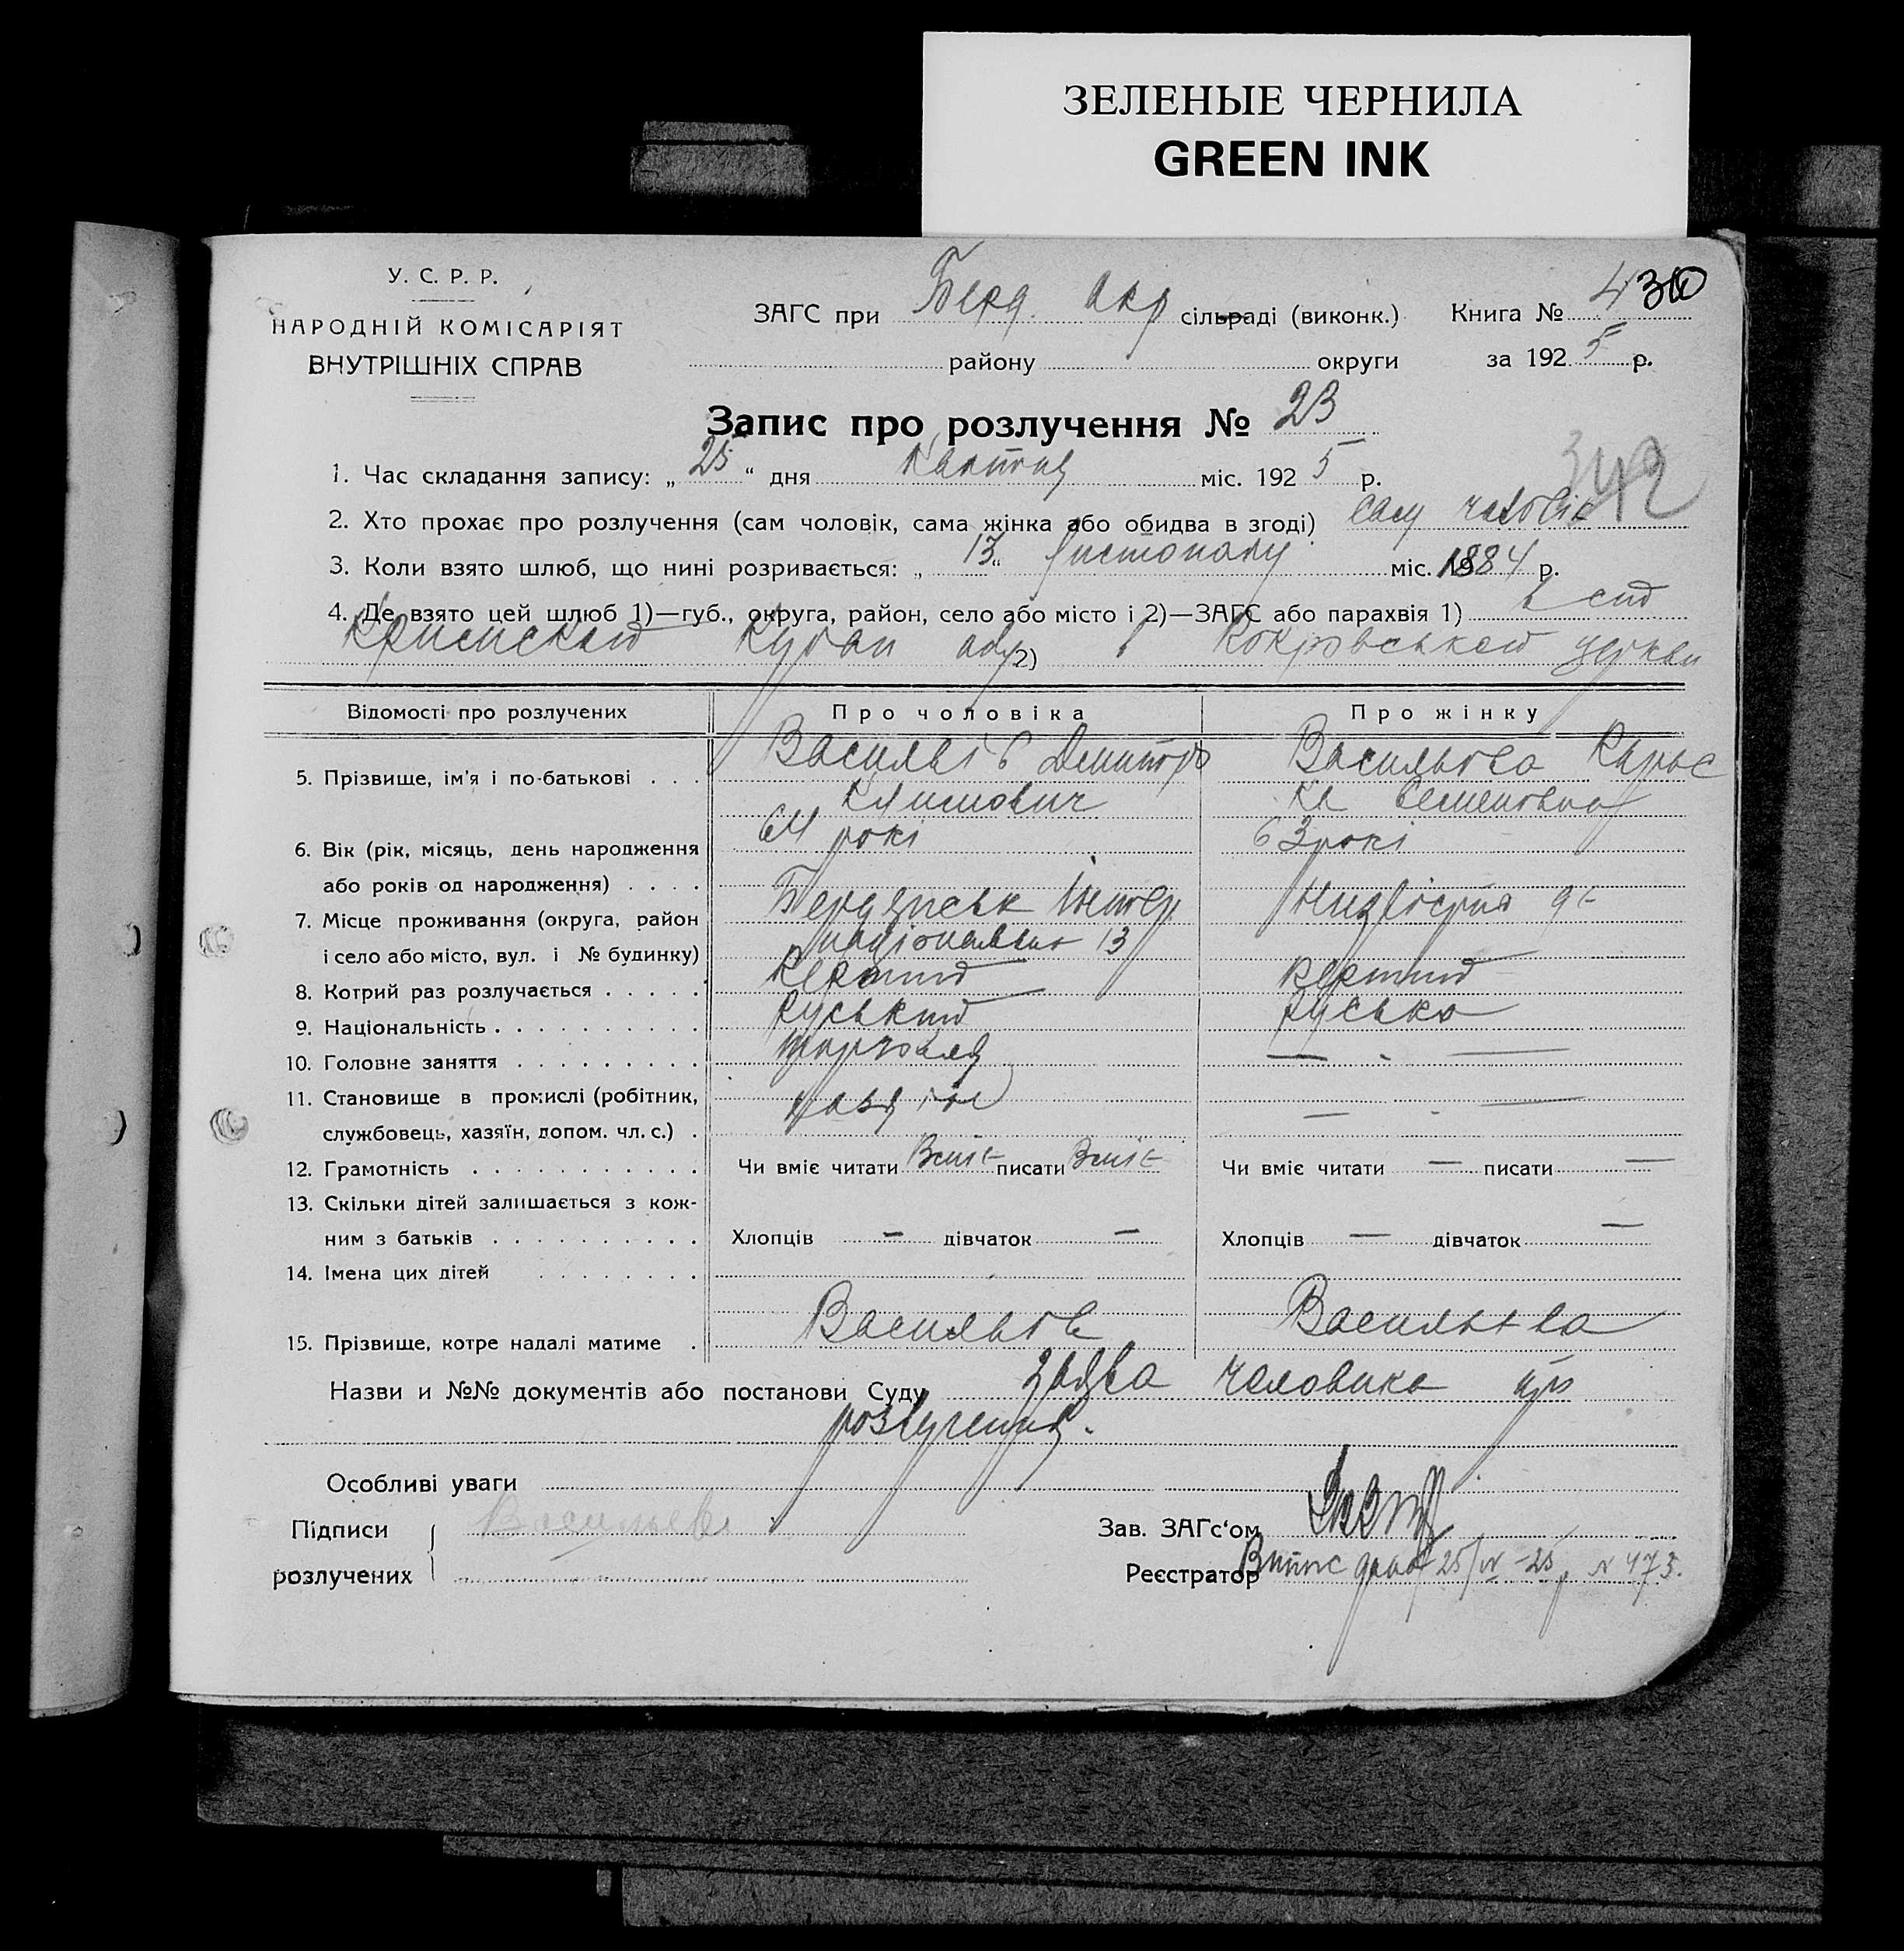 ЗЕЛЕНЫЕ ЧЕРНИЛА
GREEN INK
У. С. Р. Р.
НАРОДНІЙ КОМІСАРІЯТ
ВНУТРІШНІХ СПРАВ
ЗАГС при Берд. окр сільраді (виконк.) Книга № 4
30
району округи за 1925 р.
Запис про розлучення № 23
342
1. Час складання запису: „25“ дня Квітня міс. 1925 р.
2. Хто прохає про розлучення (сам чоловік, сама жінка або обидва в згоді) сам чоловік
3. Коли взято шлюб, що нині розривається: „13“ листопаду міс. 1884 р.
4. Де взято цей шлюб 1)—губ., округа, район, село або місто і 2)—ЗАГС або парахвія 1) в
Кримскай Кубан 2) в Покровськой церкви
Відомості про розлучених
Про чоловіка
Про жінку
5. Прізвище, ім'я і по-батькові . . . Васильєв Дмитро Васильева
Климович Семеновна
6. Вік (рік, місяць, день народження 64 рокі 63 рокі
або років од народження) . . . .
7. Місце проживання (округа, район Бердянськ Інтер
і село або місто, вул. і № будинку) національна 13
8. Котрий раз розлучається . . . . . Перший Перший
9. Національність . . . . . . . . . . Руський Руська
10. Головне заняття . . . . . . . . . торговля — —
11. Становище в промислі (робітник, хазяїн — —
службовець, хазяїн, допом. чл. с.) .
12. Грамотність . . . . . . . . . . . Чи вміє читати Вміє писати Вміє Чи вміє читати — писати —
13. Скільки дітей залишається з кож-
ним з батьків . . . . . . . . . . Хлопців — дівчаток — Хлопців — дівчаток —
14. Імена цих дітей . . . . . . . .
15. Прізвище, котре надалі матиме . Васильєв Васильева
Назви и №№ документів або постанови Суду заява человика про
розлучення.
Особливі уваги
Підписи Васильев Зав. ЗАГс‘ом
розлучених Реєстратор
Витяс 25/IV-25р N 473.